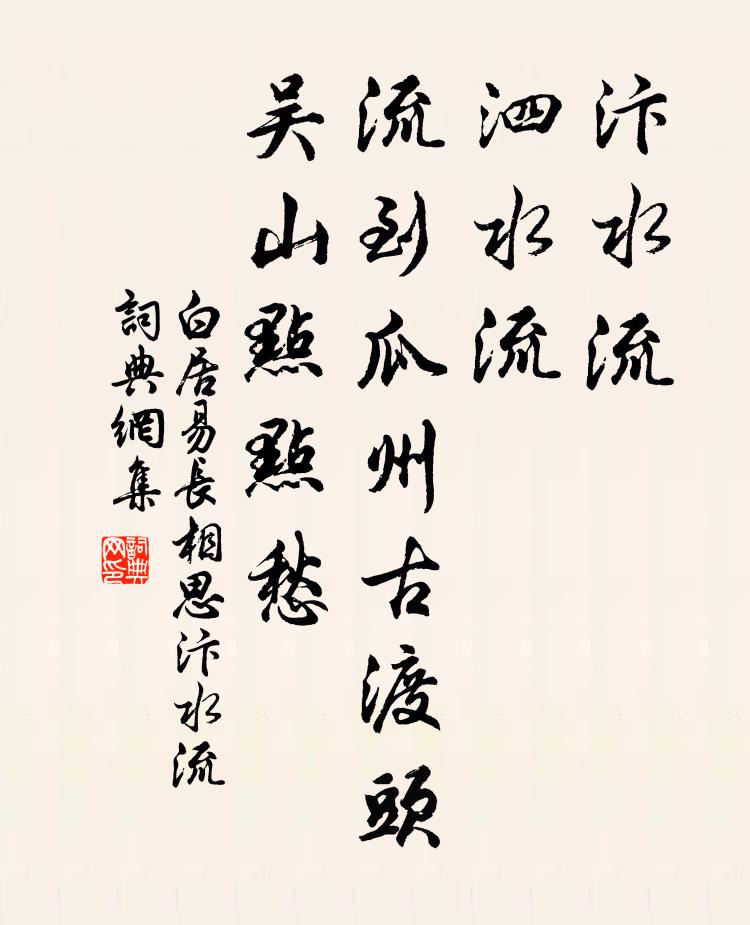 汴水流
泗水流
流到瓜州古渡頭
吴山點點愁
白居易長相思汴水流
詞典網集
詞典
网印